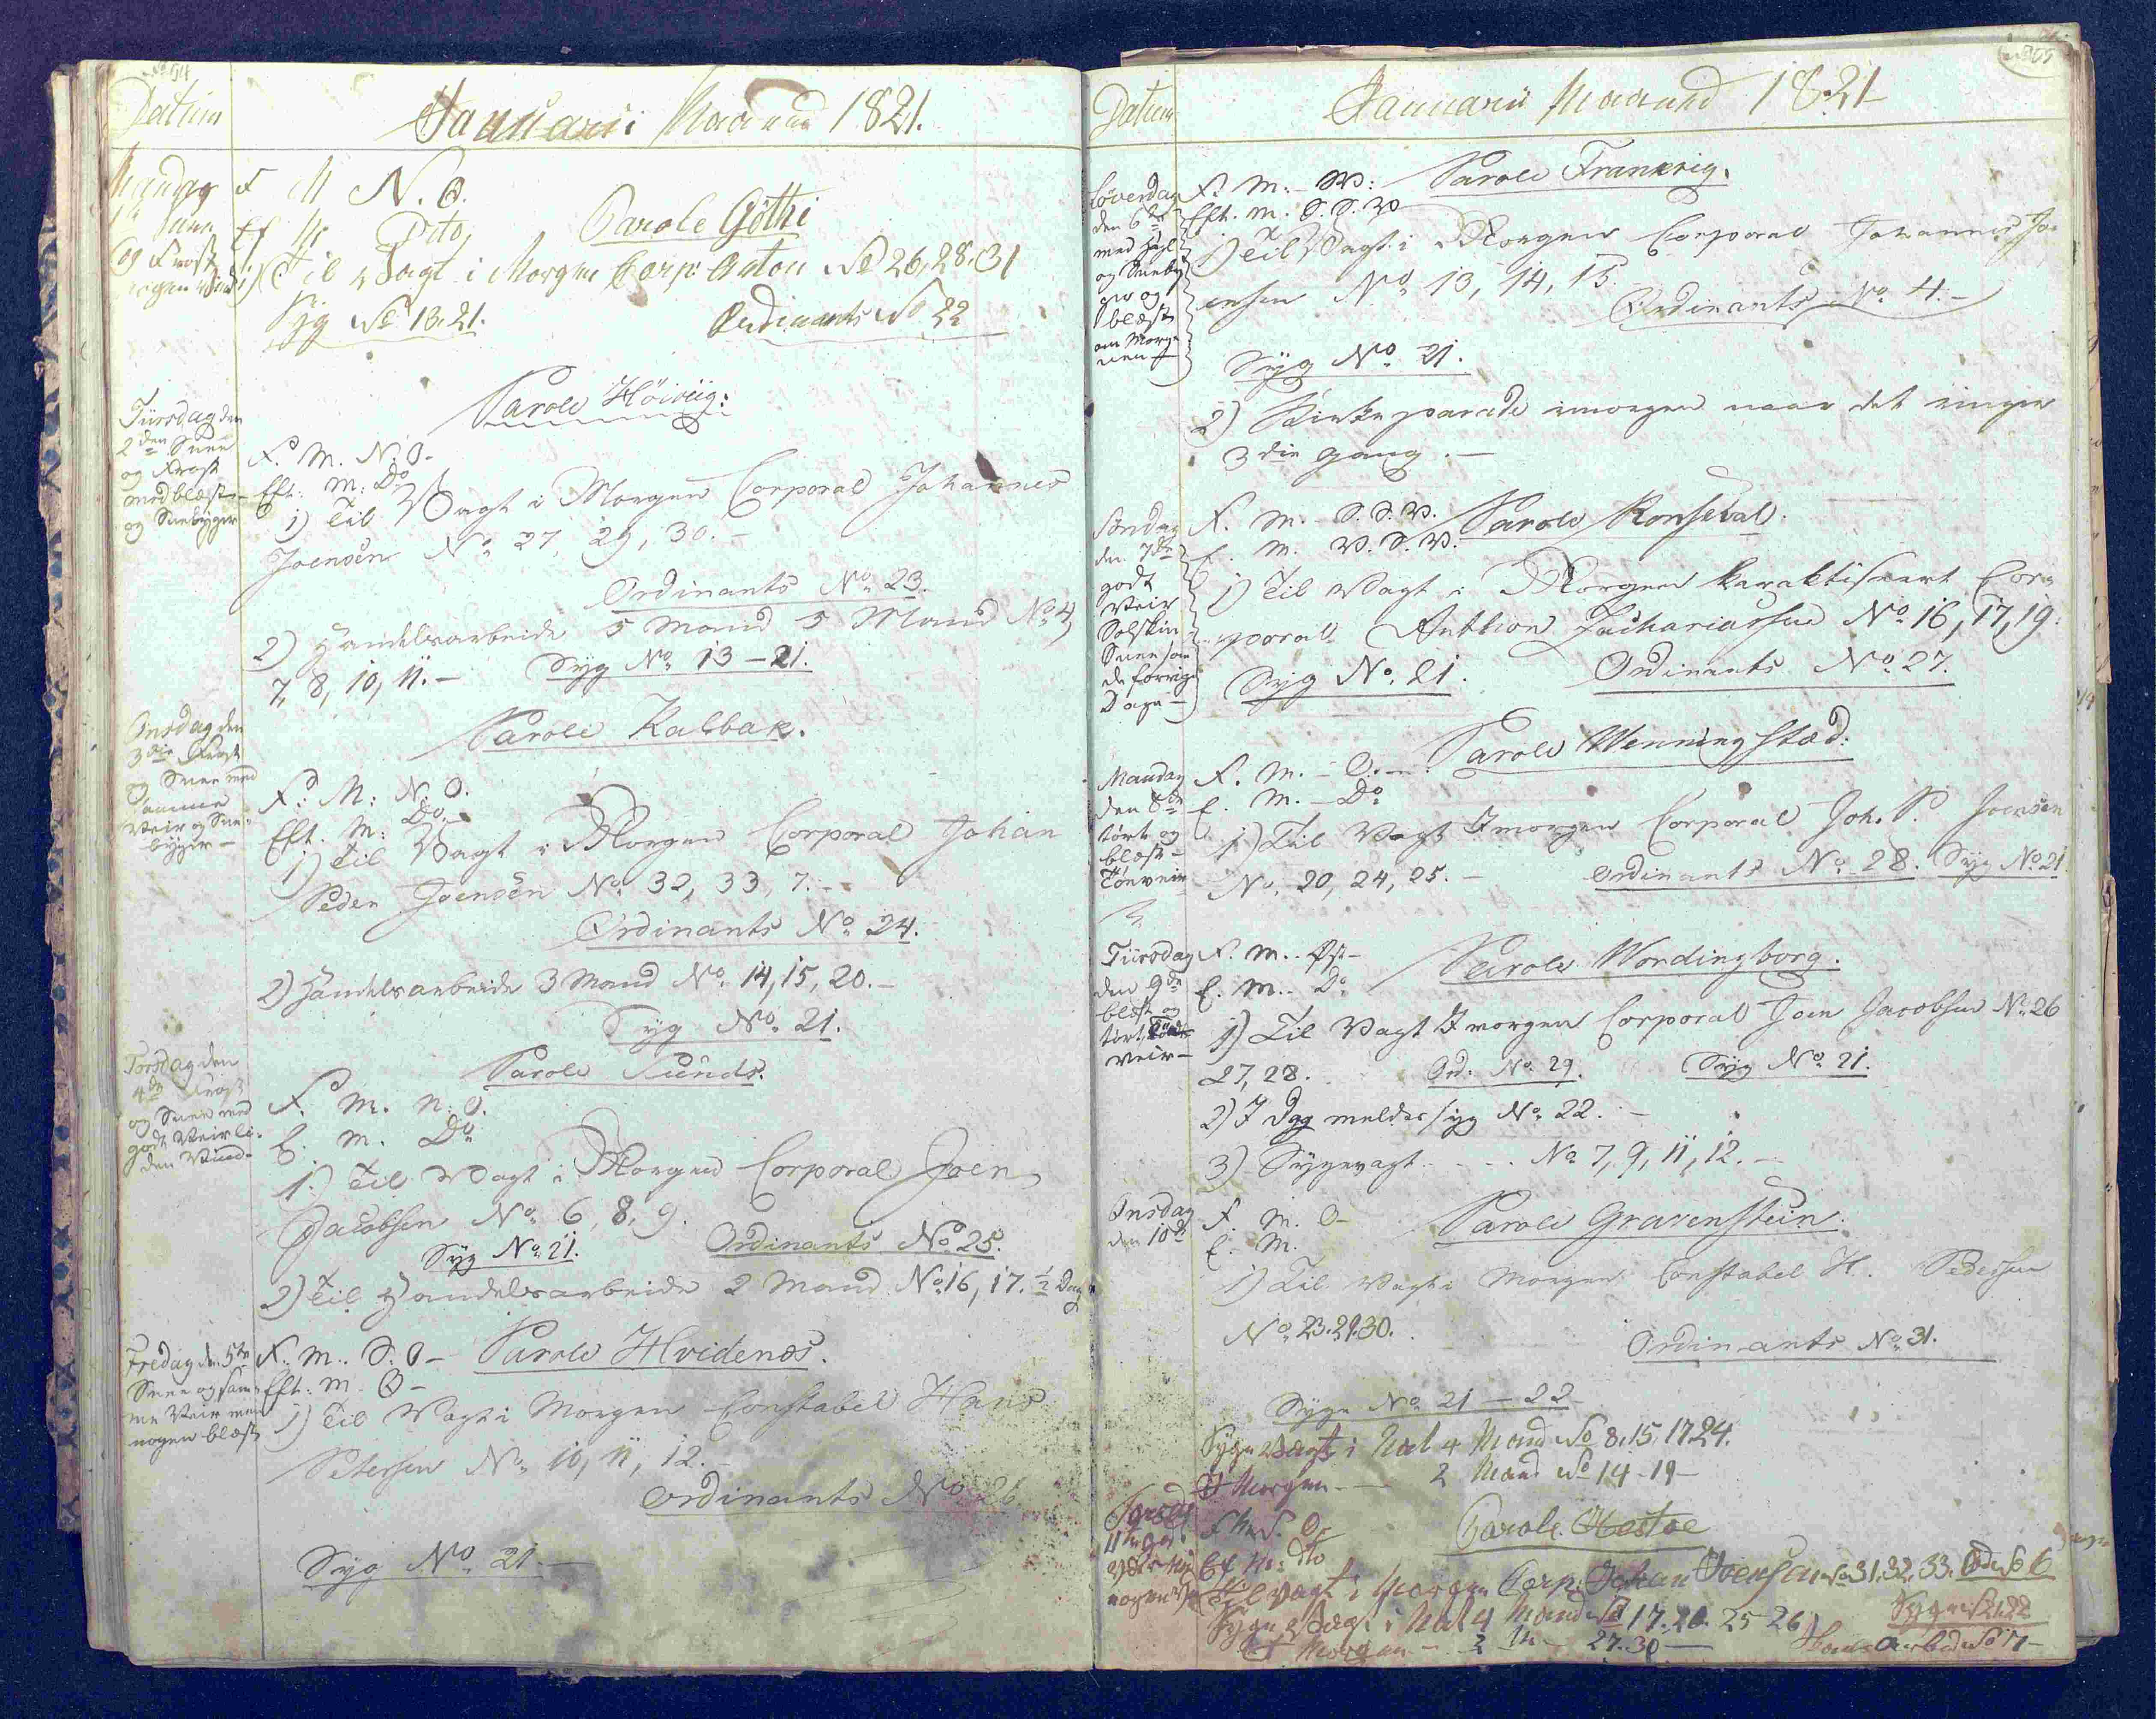 Datum
Januarii Maaned 1821.
Mandag
1te Janu
og Frost
nogen Vind
F M N. O.
Ef M Dito
Parole Göthe
1) Til Vagt i Morgen Corp: Anton No 26, 28. 31
Syg No 13. 21.
Ordinants No 22
Tiirsdag den
2den Snee
og Frost
med blæst
og Sneebyger
Parole Höiviig:
F. M. N. O.
Eft: M: Do
1) Til Vagt i Morgen Corporal Johannes
Joensen No 27, 29, 30. -
Ordinants No 23.
2) Handelsarbeide 5 Mand 5 Mand No 4,
7, 8, 10, 11. -
Syg No 13 - 21.
Onsdag den
3die Frost
og Snee med
samme
Veir og Snee-
byger -
Parole Kalbak.
F: M: N: O.
Eft. M: Do.
1) Til Vagt i Morgen Corporal Johan
Peder Joensen No 32, 33, 7. -
Ordinants No 24.
2) Handelsarbeide 3 Mand No 14, 15, 20. -
Syg No 21.
Torsdag den
4de Frost
og Snee med
godt Veir li-
den Vind -
Parole Sunds.
F. M. N. O.
E. M. Do
1.) Til Vagt i Morgen Corporal Joen
Jacobsen No 6, 8, 9.
Syg No 21.
Ordinants No 25.
2) Til Handelsarbeide 2 Mand No 16, 17. ½ Dag
Fredag den 5te
Snee og sam-
me Veir men
nogen blæst
F. M. S. O - Parole Hvidenæs.
Eft: M. O -
1) Til Vagt i Morgen Constabel Hans
Petersen No 10, 11, 12. -
Ordinants No 26
Syg No 21. -
Datum
Januarii Maaned 1821
Löverdag
den 6te
med Hagl
og Sneeby
ger og
blæst
om Morge
nen
F. M. - V: Parole Frankrig.
Eft. M. S. S. V
1) Til Vagt i Morgen Corporal Johannes Jo-
ensen No 13, 14, 15.
Ordinants No 4. -
Syg No 21.
2) Kirkeparade imorgen naar det ringer
3die gang. -
Söndag
den 7de
godt
Veir
Solskin
Snee som
de forrige
Dage -
F. M. S. S. V. Parole Ronseval.
E. M. V. S. V.
1) Til Vagt i Morgen karaktiseert Cor-
poral Anthon Zachariassen No 16, 17, 19.
Syg No 21.
Ordinants No 27.
Mandag
den 8de
tört og
blæst -
Töeveir
F. M. - O. - Parole Wenningstæd.
E. M. - Do
1) Til Vagt Imorgen Corporal Joh. P. Joensen
No 20, 24, 25. -
Ordinants No 28. Syg No 21
Tiirsdag
den 9de
blæst og
tört
veir -
F. M. Øst -
E. M. - Do
Parole Wordingborg.
1) Til Vagt Imorgen Corporal Joen Jacobsen No 26
27, 28.
Ord: No 29.
Syg No 21.
2) I Dag meldes syg No 22. -
3) Sygevagt - - - No 7, 9, 11, 12. -
Onsdag
den 10de
F. M. O - Parole Gravenstein.
E. M.
1) Til Vagt i Morgen Constabel H. Pedersen
No 23. 29. 30.
Ordinants No 31.
Syge No 21 - 22
Syge Vagt i Nat 4 Mand No 8. 15. 17 24.
I Morgen - 2 Mand No 14 - 19 -
11te
F M S. O
Ef M: Dto
Parole Nestøe
Til Vagt i Morgen Corp: Johan Joensen No 31. 32. 33. Ord No 6
Syge Vagt i Nat 4 Mand No 17. 20. 25 - 26
Syge No 21. 22
I Morgen - 2 M - 27. 30 -